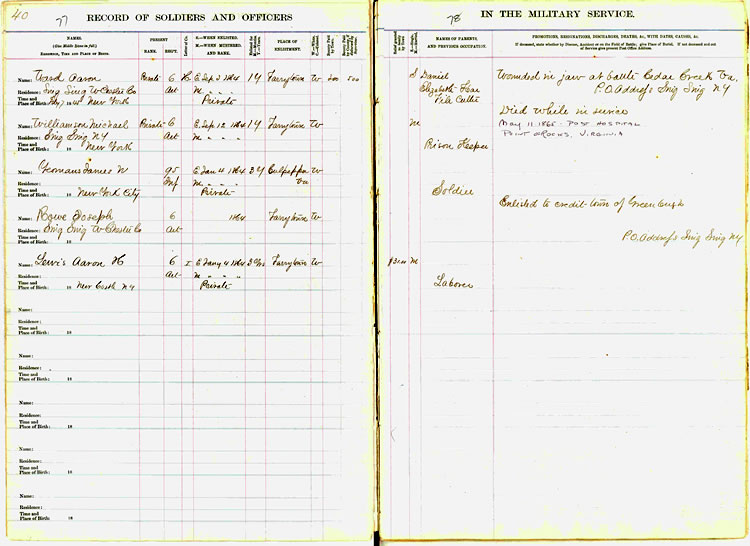 40
77
RECORD OF SOLDIERS AND OFFICERS
NAMES.
(One Middle Name in full.)
RESIDENCE, TIME AND PLACE OF BIRTH.
PRESENT
RANK. REG'T.
Letter of Co.
E.—WHEN ENLISTED.
M.—WHEN MUSTERED,
AND RANK.
PLACE OF
ENLISTMENT.
Name: Ward Aaron Private 6 H E Sep 3 1864 1 Y Tarrytown W 300 500
Residence: Sing Sing W Chester Co Art M " " "
Time and
Place of Birth: 18 New York Private
Name: Williamson Michael Private 6 E Sep 12 1864 1 Y Tarrytown W
Residence: Sing Sing NY Art M " " "
Time and
Place of Birth: 18 New York
Name: Yeomans James W 95 E Jan 4 1864 3 Y Culpepper W
Residence: Inf M " " " Va
Time and
Place of Birth: 18 New York City Private
Name: Rowe Joseph 6 1864 Tarrytown W
Residence: Sing Sing W Chester Co Art
Time and
Place of Birth: 18
Name: Lewis Aaron H 6 I E Jany 4 1864 3 Tarrytown W
Residence: Art M " " "
Time and
Place of Birth: 18 New Castle NY Private
Name:
Residence:
Time and
Place of Birth: 18
Name:
Residence:
Time and
Place of Birth: 18
Name:
Residence:
Time and
Place of Birth: 18
Name:
Residence:
Time and
Place of Birth: 18
Name:
Residence:
Time and
Place of Birth: 18
78
IN THE MILITARY SERVICE.
NAMES OF PARENTS,
AND PREVIOUS OCCUPATION.
PROMOTIONS, RESIGNATIONS, DISCHARGES, DEATHS, &c., WITH DATES, CAUSES, &c.
If deceased, state whether by Disease, Accident or on the Field of Battle, give Place of Burial. If not deceased and out
of Service give present Post Office Address.
S Daniel Wounded in jaw at battle Cedar Creek Va,
Elizabeth P.O. Address Sing Sing NY
File Cutter
Died while in service
M May 11 1865 - Post Hospital
Point of Rocks, Virginia
Prison Keeper
Soldier
Enlisted to credit town of Greenburgh
P.O. Address Sing Sing NY
M
Laborer